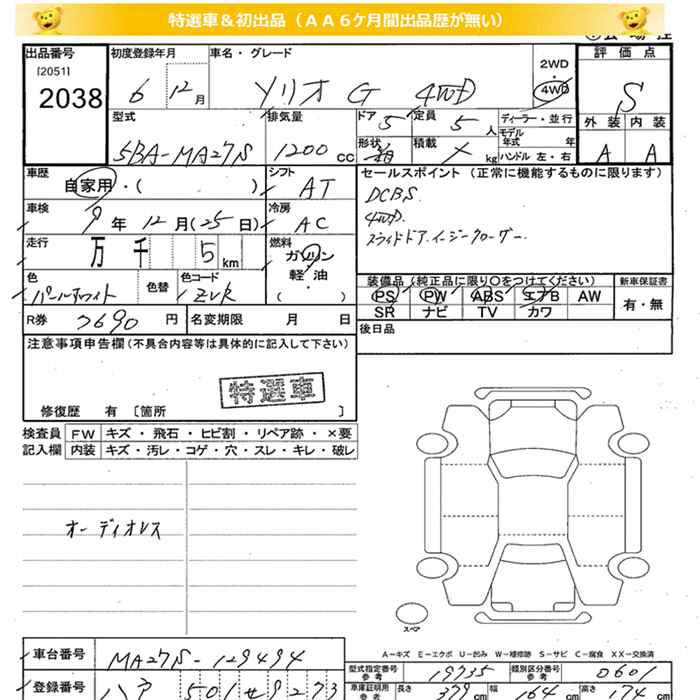 特選車＆初出品（ＡＡ６ケ月間出品歴が無い）
出品番号 初度登録年月 車名・グレード 評価点
[2051] 2WD・
2038 6 12月 ソリオ G 4WD 4WD S
型式 排気量 ドア 5 定員 5人 ディーラー・並行 外装 内装
5BA-MA27S 1200cc 形状 箱 積載 kg モデル年式 年 A A
ハンドル 左・右
車歴 自家用・( ) シフト AT セールスポイント（正常に機能するものに限ります）
DCBS.
車検 9年 12月(25日) 冷房 AC 4WD.
スライドドア.イージークローザー.
走行 万 千 5 km 燃料 ガソリン
軽・油
( ・ )
色 パールホワイト 色替 色コード ZVR
装備品（純正品に限り○をつけてください） 新車保証書
PS PW ABS エアB AW 有・無
SR ナビ TV カワ
R券 7690円 名変期限 月 日 後日品
注意事項申告欄（不具合内容等は具体的に記入して下さい）
特選車
修復歴 有 〔箇所 〕
検査員 FW キズ・飛石・ヒビ割・リペア跡・×要
記入欄 内装 キズ・汚レ・コゲ・穴・スレ・キレ・破レ
オーディオレス
スペア
A－キズ E－エクボ U－凹み W－補修跡 S－サビ C－腐食 XX－交換済
車台番号 MA27S-129494 型式指定番号 参考 19735 類別区分番号 参考 0601
登録番号 501 せ 9273 車庫証明用 参考 長さ 379cm 幅 164cm 高さ 174cm